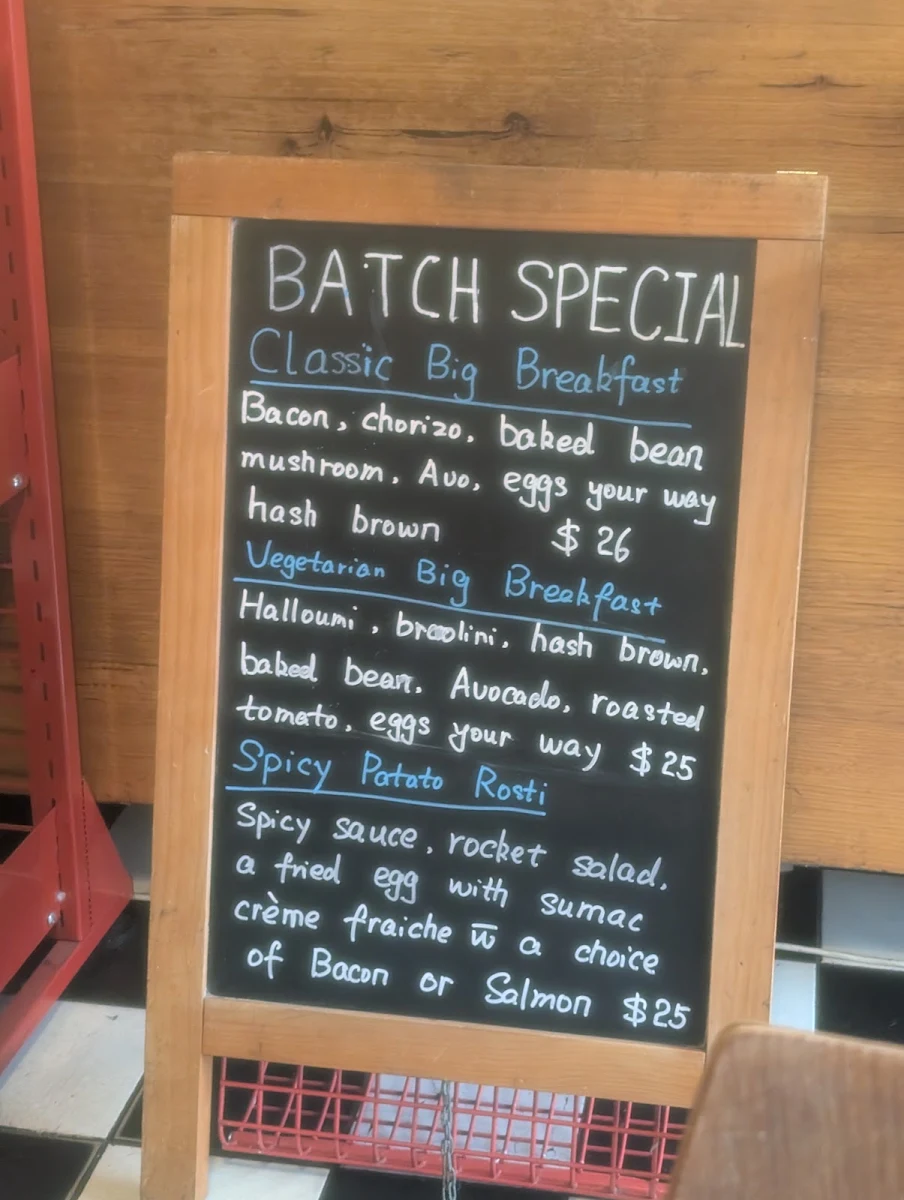 BATCH SPECIAL
Classic Big Breakfast
Bacon, chorizo, baked bean
mushroom, Avo, eggs your way
hash brown $26
Vegetarian Big Breekfast
Halloumi, broolini, hash brown,
baked bean, Avocado, roasted
tomato, eggs your way $25
Spicy Patato Rosti
Spicy sauce, rocket salad,
a fried egg with sumac
crème fraiche w̅ a choice
of Bacon or Salmon $25